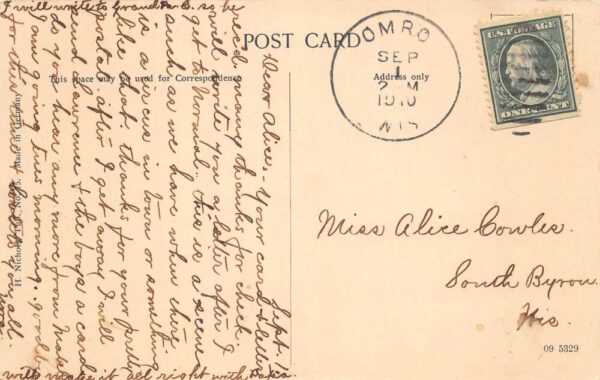 I will write to Grandpa B. so he
POST CARD
This space may be used for Correspondence
Address only
H. Nichols, Pub., No. Made in Germany
OMRO
SEP
1
2 M
1910
WIS
U.S. POSTAGE
ONE CENT
Sept. 1.
Dear Alice,- Your card & letter
recd. many thanks for check,
will write you a letter after I
get to Normal. This is a scene
such as we have when there
is a circus in town or something
like that. thanks for your pretty
postal, after I get away I will
send Lawrence & the boys a card
do you hear any more from Mabel
I am going tues morning. good by
for this time & love to you all
will make it all right with Papa.
Miss Alice Cowles.
South Byron
Wis.
09 5329